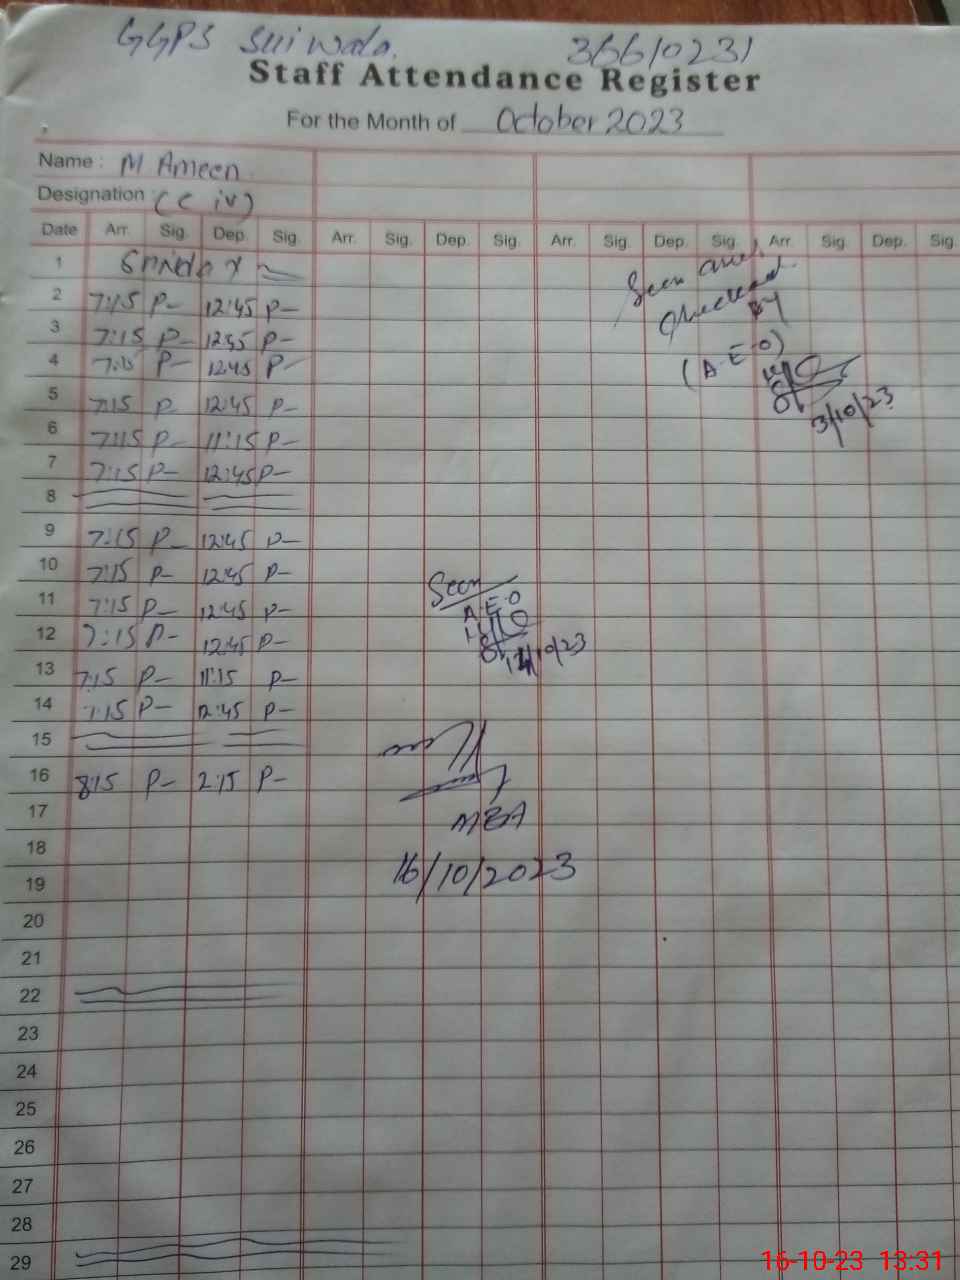 GGPS Sui wala. 36610231
Staff Attendance Register
For the Month of October 2023
Name : M Ameen
Designation : (C iv)
Date Arr. Sig. Dep. Sig. Arr. Sig. Dep. Sig. Arr. Sig. Dep. Sig. Arr. Sig. Dep. Sig.
1 Sunday
2 7:15 P- 12:45 P-
3 7:15 P- 12:45 P-
4 7:15 P- 12:45 P-
5 7:15 P 12:45 P-
6 7:15 P- 11:15 P-
7 7:15 P- 12:45 P-
8
9 7:15 P- 12:45 P-
10 7:15 P- 12:45 P-
11 7:15 P- 12:45 P-
12 7:15 P- 12:45 P-
13 7:15 P- 11:15 P-
14 7:15 P- 12:45 P-
15
16 8:15 P- 2:15 P-
17
18
19
20
21
22
23
24
25
26
27
28
29
Seen and
Checked
By
(A.E.O)
3/10/23
Seen
A.E.O
10/23
MEA
16/10/2023
16-10-23 13:31